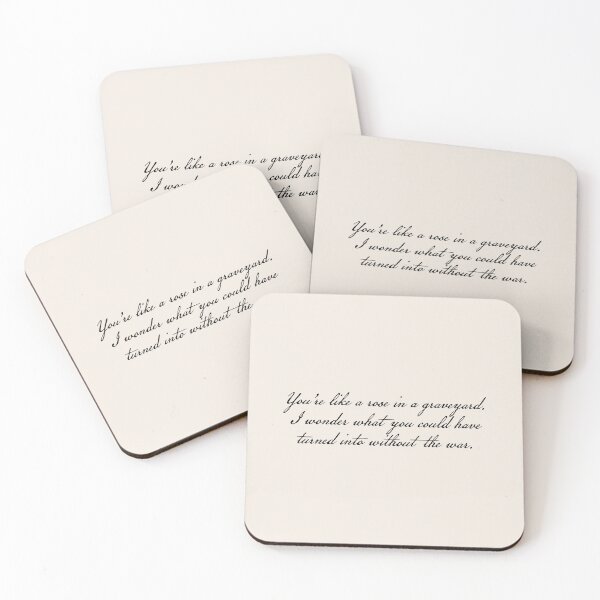 You're like a rose in a
I could
the
You're like a rose in a graveyard.
I wonder what you could have
turned into without the war.
You're like a rose in a graveyard.
I wonder what you could have
turned into without the
You're like a rose in a graveyard.
I wonder what you could have
turned into without the war.